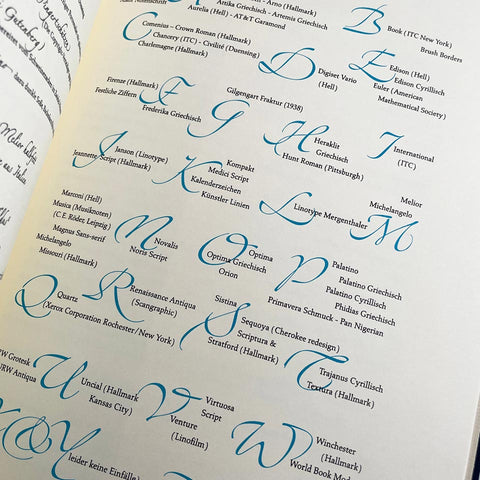 Gutenberg)
Arno (Hallmark)
Attika Griechisch - Artemis Griechisch
Aurelia (Hell) - AT&T Garamond
B
Book (ITC New York)
Brush Borders
C
Comenius - Crown Roman (Hallmark)
Chancery (ITC) - Civilité (Duensing)
Charlemagne (Hallmark)
D
Digiset Vario
(Hell)
E
Edison (Hell)
Edison Cyrillisch
Euler (American
Mathematical Society)
Firenze (Hallmark)
Festliche Ziffern
F
Frederika Griechisch
G
Gilgengart Fraktur (1938)
H
Heraklit
Griechisch
Hunt Roman (Pittsburgh)
I
International
(ITC)
J
Janson (Linotype)
Jeannette Script (Hallmark)
K
Kompakt
Medici Script
Kalenderzeichen
Künstler Linien
L
Linotype Mergenthaler
Melior
Michelangelo
M
Marconi (Hell)
Musica (Musiknoten)
(C.E. Röder, Leipzig)
Magnus Sans-serif
Michelangelo
Missouri (Hallmark)
N
Novalis
Noris Script
O
Optima
Optima Griechisch
Orion
P
Palatino
Palatino Griechisch
Palatino Cyrillisch
Phidias Griechisch
Primavera Schmuck - Pan Nigerian
Q
Quartz
(Xerox Corporation Rochester/New York)
R
Renaissance Antiqua
(Scangraphic)
Sistina
S
Sequoya (Cherokee redesign)
Scriptura &
Stratford (Hallmark)
T
Trajanus Cyrillisch
Textura (Hallmark)
Grotesk
URW Antiqua
U
Uncial (Hallmark
Kansas City)
V
Virtuosa
Script
Venture
(Linofilm)
W
Winchester
(Hallmark)
World Book
X&Y
leider keine Einfälle)